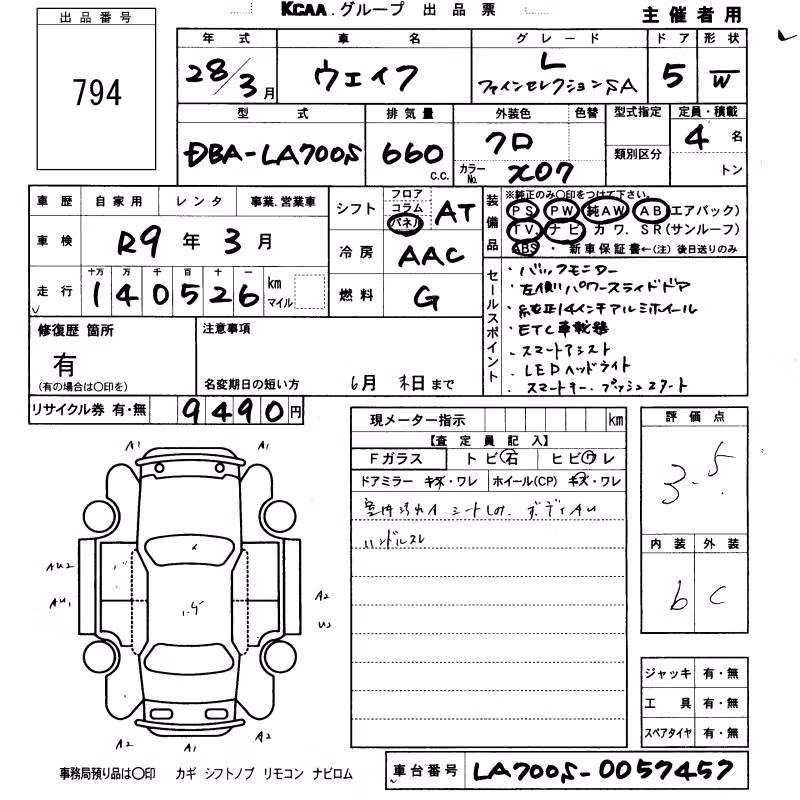 KCAA.グループ 出品票
主催者用
出品番号
794
年式 車名 グレード ドア 形状
28/3月 ウェイク L ファインセレクションSA 5 W
型式 排気量 外装色 色替 型式指定 定員・積載
DBA-LA700S 660 c.c. クロ カラーNo. X07 類別区分 4 名
トン
車歴 自家用 レンタ 事業.営業車
車検 R9年3月
走行 十万 万 千 百 十 一
140526 km マイル
シフト フロア コラム パネル AT
冷房 AAC
燃料 G
装備品
※純正のみ○印をつけて下さい。
PS PW 純AW AB(エアバック)
TV ナビ カワ. SR(サンルーフ)
ABS ・ 新車保証書←(注)後日送りのみ
セールスポイント
・バックモニター
・左側パワースライドドア
・純正14インチアルミホイール
・ETC車載器
・スマートアシスト
・LEDヘッドライト
・スマートキー.プッシュスタート
修復歴 箇所
有
(有の場合は○印を)
注意事項
名変期日の短い方 6月 末日まで
リサイクル券 有・無 9490円
現メーター指示 km
【査定員記入】
Fガラス トビ石 ヒビワレ
ドアミラー キズ・ワレ ホイール(CP) キズ・ワレ
ボディAU
ハンドルスレ
評価点
3.5
内装 外装
b C
A1 A1
AU2
AU1
A2
A2 A1 A2
ジャッキ 有・無
工具 有・無
スペアタイヤ 有・無
事務局預り品は○印 カギ シフトノブ リモコン ナビロム
車台番号 LA700S-0057457